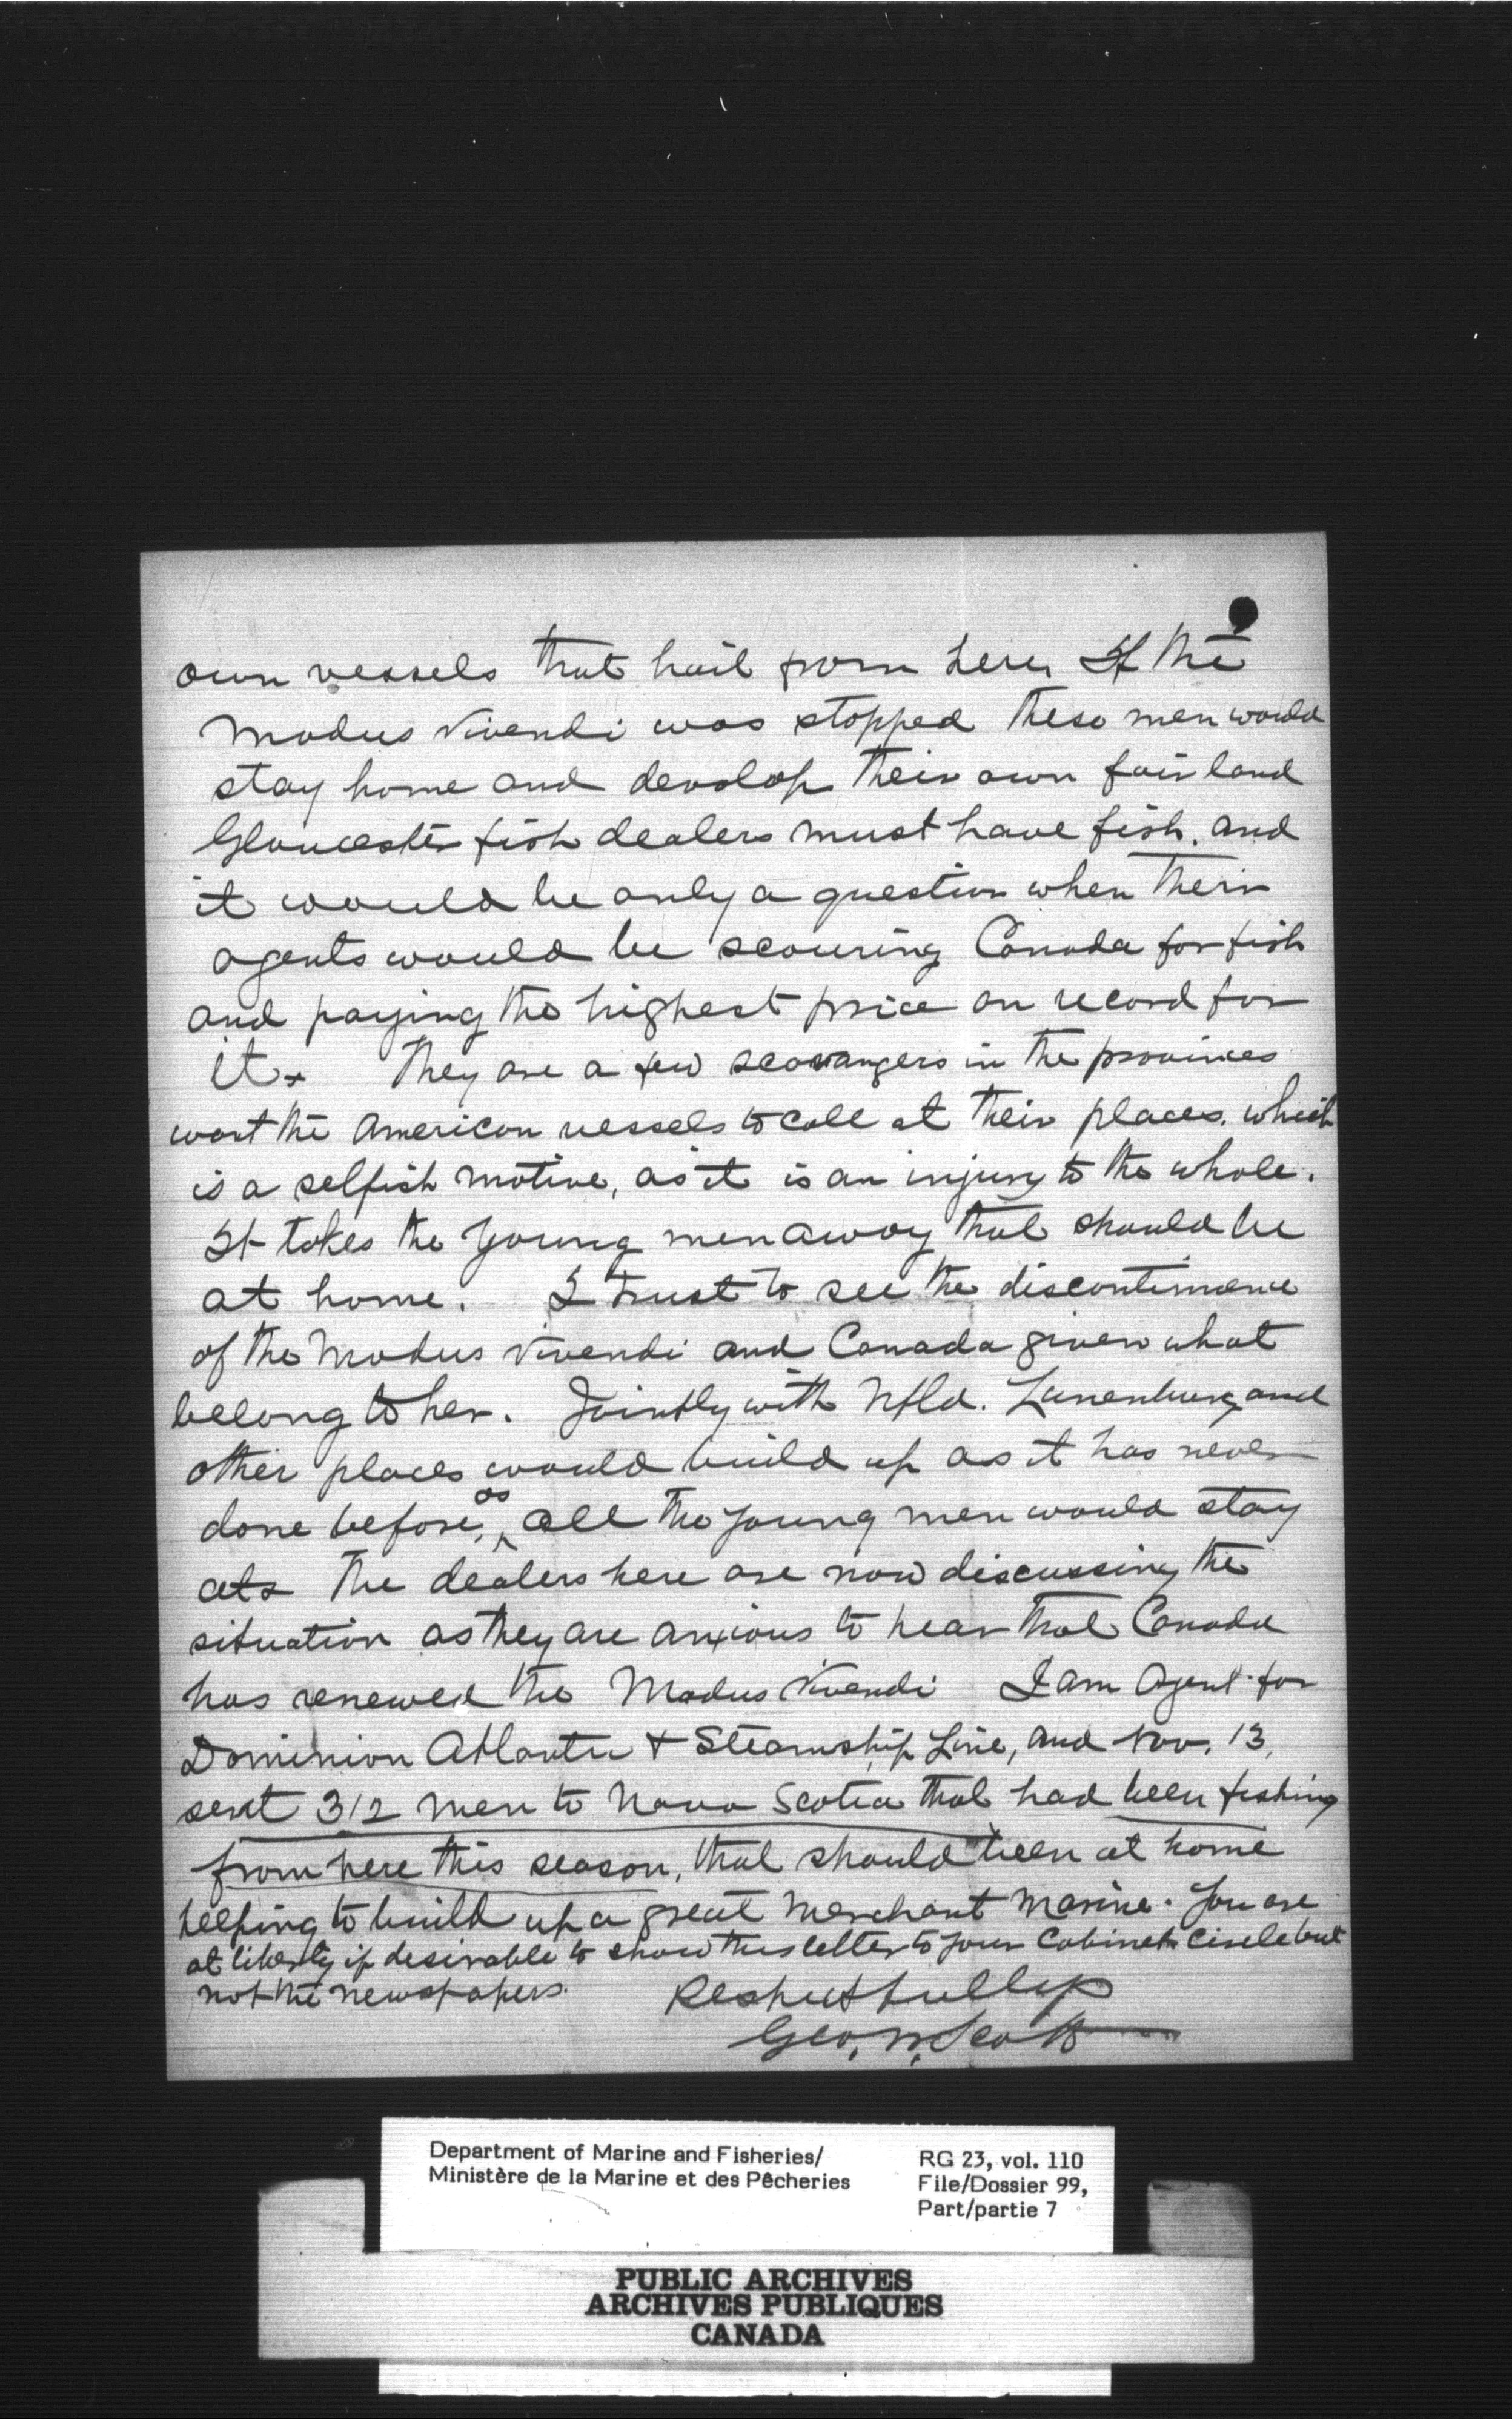 own vessels that hail from here, If the
Modus Vivendi was stopped these men would
stay home and devolop their own fair land
Gloucester fish dealers must have fish, and
it would be only a question when their
agents would be scouring Canada for fish
and paying the highest price on record for
it. They are a few scavangers in the provinces
want the American vessels to call at their places, which
is a selfish motive, as it is an injury to the whole.
It takes the young men away that should be
at home. I trust to see the discontinuance
of the Modus Vivendi and Canada given what
belong to her. Jointly with Nfld. Lunenburg and
other places would build up as it has never
done before, as all the young men would stay
at The dealers here are now discussing the
situation as they are anxious to hear that Canada
has renewed the Modus Vivendi I am Agent for
Dominion Atlantic & Steamship Line, and Nov. 13,
sent 312 men to Nova Scotia that had been fishing
from here this season, that should been at home
helping to build up a great Merchant Marine. You are
at liberty if desirable to show this letter to your Cabinet Circle but
not the newspapers. Respectfully
Geo. W. Scott
Department of Marine and Fisheries/
Ministère de la Marine et des Pêcheries
RG 23, vol. 110
File/Dossier 99,
Part/partie 7
PUBLIC ARCHIVES
ARCHIVES PUBLIQUES
CANADA